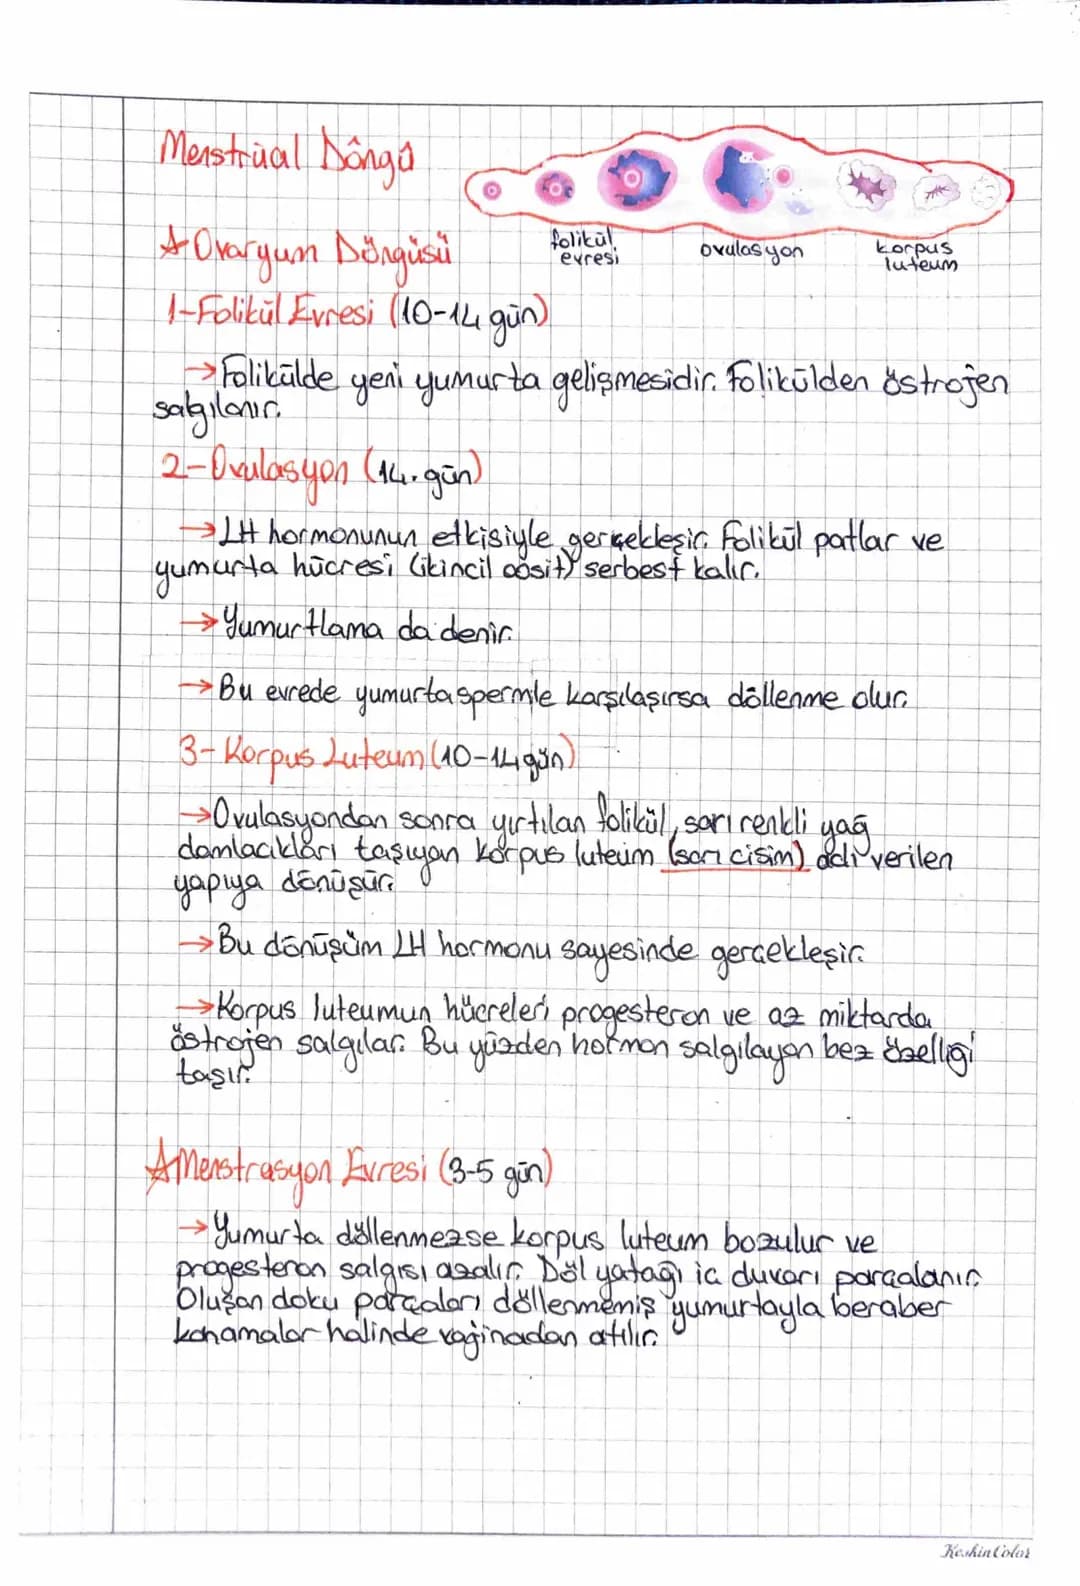 Menstrüal Döngü
folikül
evresi
ovulasyon
korpus
luteum
Ovaryum Döngüsü
1-Folikül Evresi (10-14 gün)
→Folikülde yeni yumurta gelişmesidir. Folikülden östrojen
salgılanır.
2-Ovulasyon (14. gün)
→LH hormonunun etkisiyle gerçekleşir. Folikül patlar ve
yumurta hücresi (ikincil oosit) serbest kalır.
→Yumurtlama da denir.
→Bu evrede yumurta spermle karşılaşırsa döllenme olur.
3- Korpus Luteum (10-14 gün)
→Ovulasyondan sonra yırtılan folikül, sarı renkli yağ
damlacıkları taşıyan korpus luteum (sarı cisim) adı verilen
yapıya dönüşür.
→Bu dönüşüm LH hormonu sayesinde gerçekleşir.
→Korpus luteumun hücreleri progesteron ve az miktarda
östrojen salgılar. Bu yüzden hormon salgılayan bez özelliği
taşır.
Menstrasyon Evresi (3-5 gün)
→Yumurta döllenmezse korpus luteum bozulur ve
progesteron salgısı azalır. Döl yatağı iç duvarı parçalanır.
Oluşan doku parçaları döllenmemiş yumurtayla beraber
kanamalar halinde vajinadan atılır.
KeskinColor